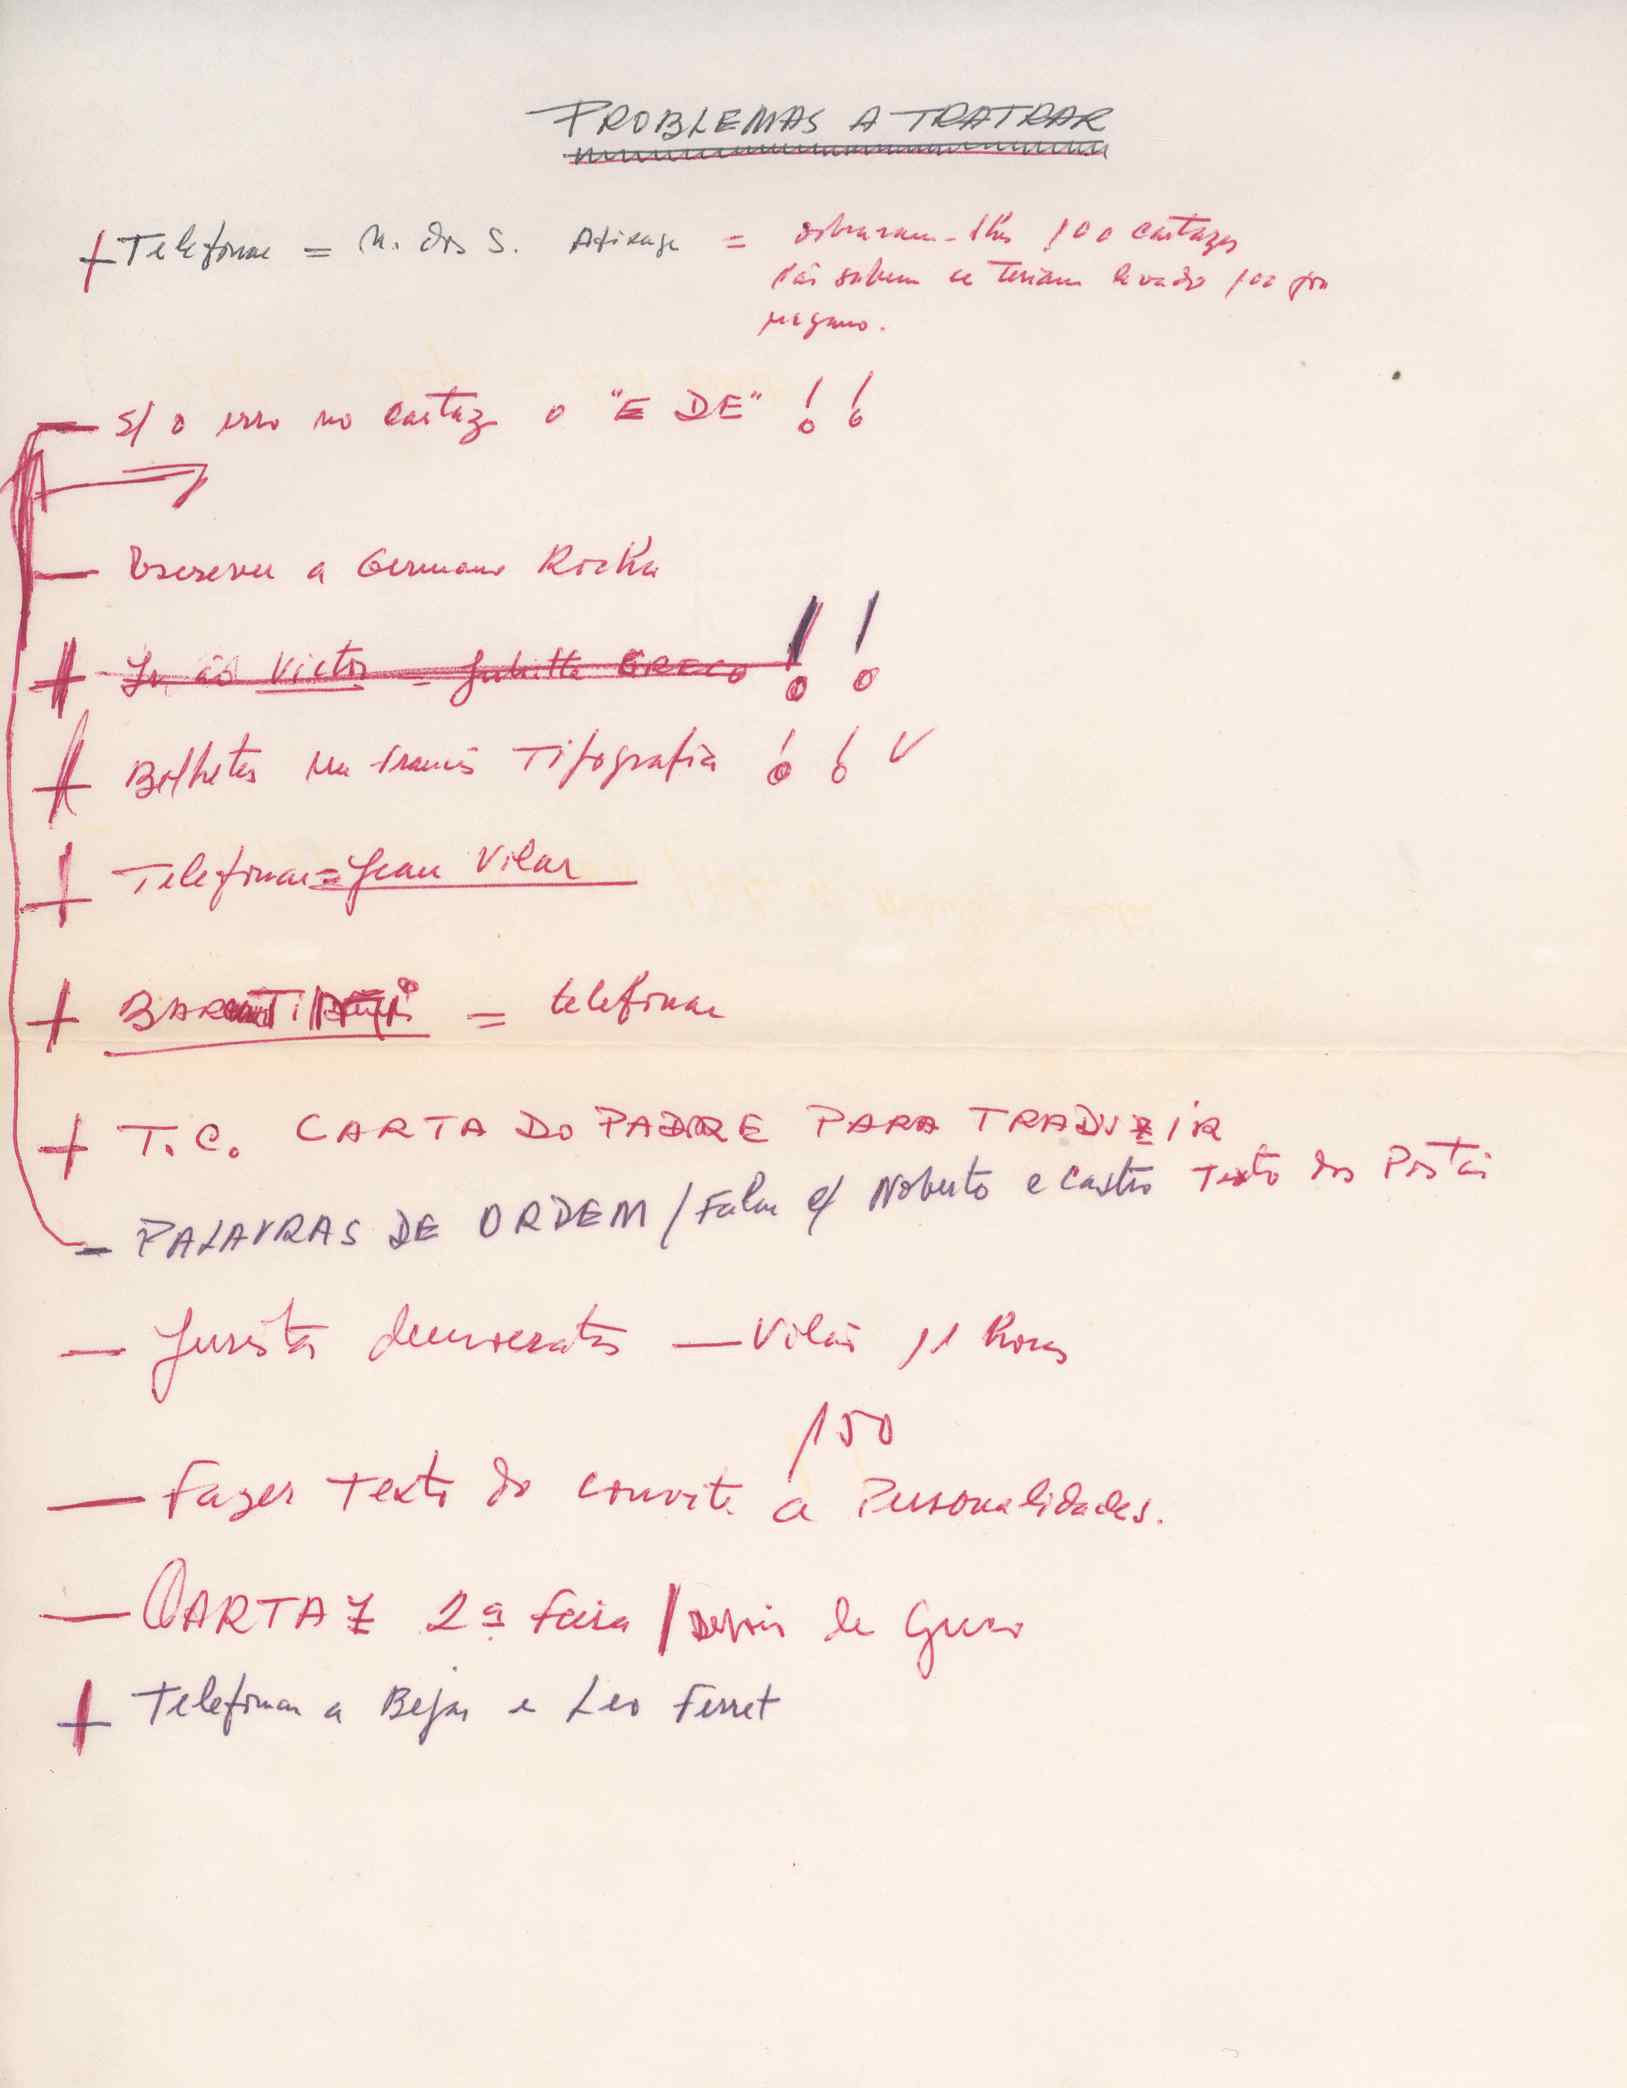 PROBLEMAS A TRATRAR
+ Telefonar = M. dos S. Afixage = sobraram-lhes 100 cartazes
Não sabem se teriam levado 100 por
engano.
— S/ o erro no cartaz o "E DE" !!
— Escrever a Germano Rocha
+ Ir ao Victor = Juliette GRECO !!
+ Bilhetes na Tipografia !! V
+ Telefonar = Jean Vilar
+ = telefonar
+ T.C. CARTA DO PADRE PARA TRADUZIR
- PALAVRAS DE ORDEM / Falar c/ Noberto e Castro Texto dos Postais
— Juristas democratas — Vilar 11 horas
150
— Fazer Texto do convite a Personalidades.
— CARTAZ 2ª feira / Depois de
+ Telefonar a Bejar e Leo Ferret